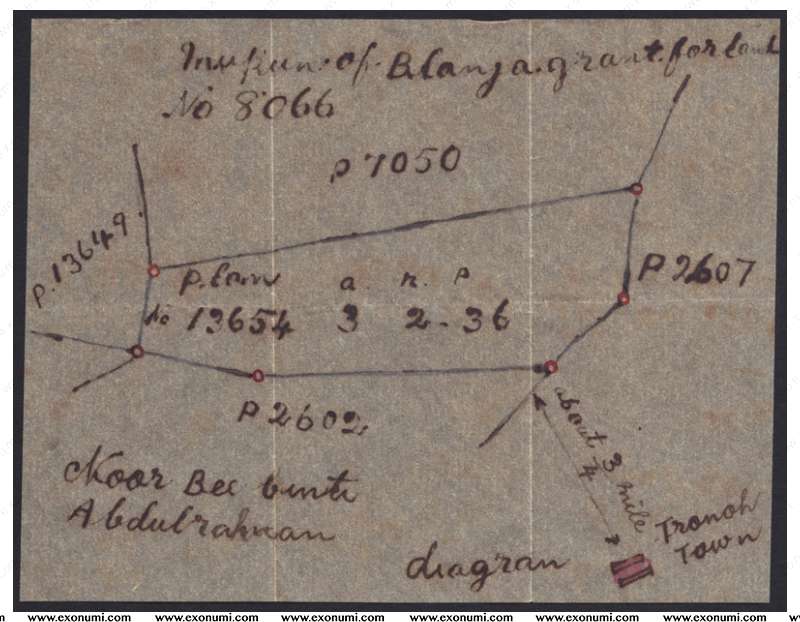 Mukim of Blanja grant for land
No 8066
P 7050
P. 13649.
P 2607
a. r. p
No 13654 3 2 - 36
P 2602
about 3/4 mile
Noor Bee binti
Abdulrahman
Tronoh
Town
diagran
www.exonumi.com www.exonumi.com www.exonumi.com www.exonumi.com www.exonumi.com